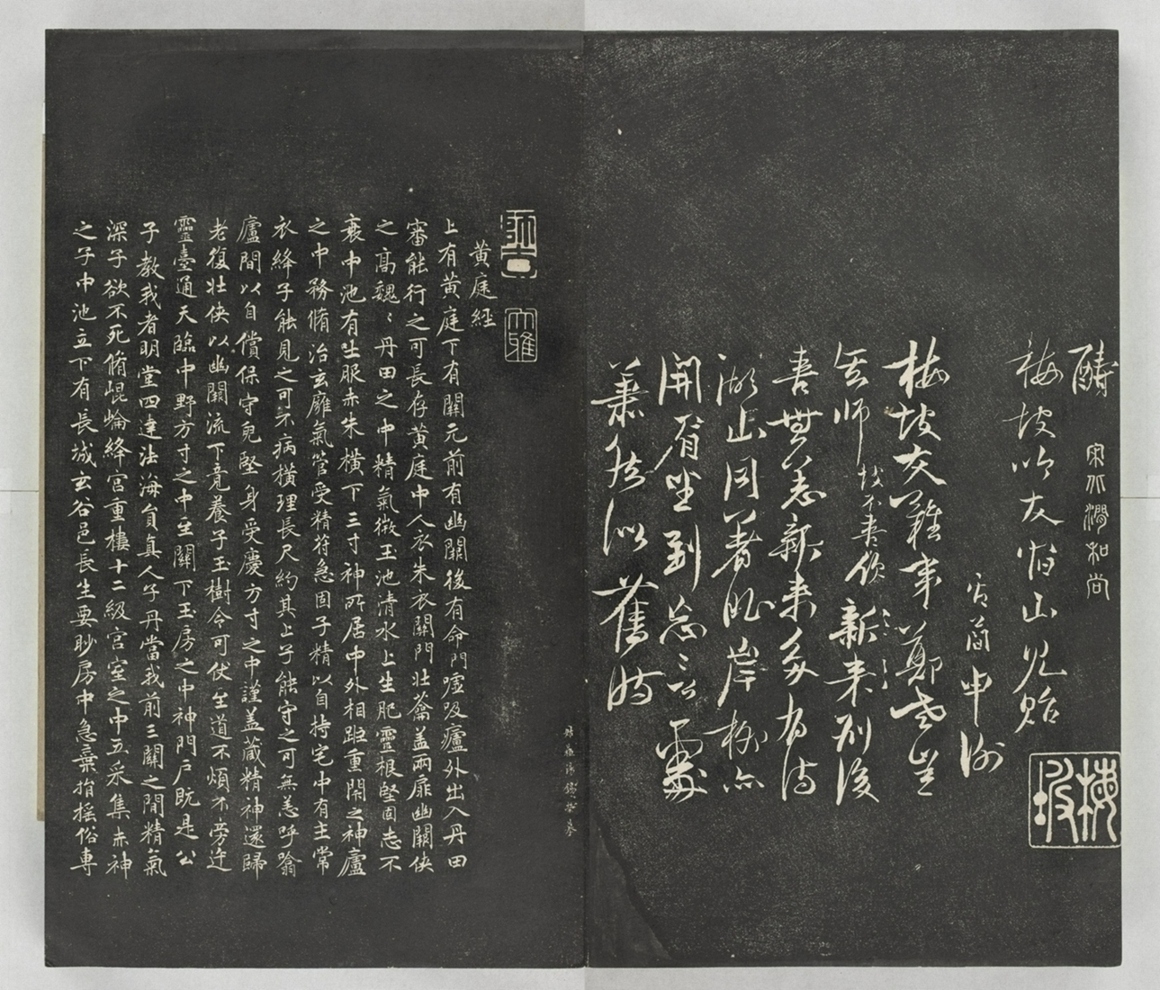 疇
宋北磵和尚
梅坡以友惜山見貽
占簡申謝
梅坡友難來鄭老豈
喜無恙新來多有詩
湖山同著眼岸柳亦
開眉坐到忘言處
蕭然似舊時
梅坡
師古
大雅
黃庭経
上有黃庭下有關元前有幽闕後有命門噓吸廬外出入丹田
審能行之可長存黃庭中人衣朱衣關門壯籥蓋兩扉幽闕俠
之高魏〻丹田之中精氣微玉池清水上生肥靈根堅固志不
衰中池有士服赤朱橫下三寸神所居中外相距重閇之神廬
之中務脩治玄廱氣管受精符急固子精以自持宅中有士常
衣絳子能見之可不病橫理長尺約其上子能守之可無恙呼噏
廬間以自償保守兒堅身受慶方寸之中謹盖藏精神還歸
老復壮俠以幽闕流下竟養子玉樹令可伏至道不煩不旁迕
靈臺通天臨中野方寸之中至關下玉房之中神門戶既是公
子教我者明堂四達法海員真人子丹當我前三關之間精氣
深子欲不死脩崐崘絳宮重樓十二級宮室之中五采集赤神
之子中池立下有長城玄谷邑長生要眇房中急棄捐搖俗專